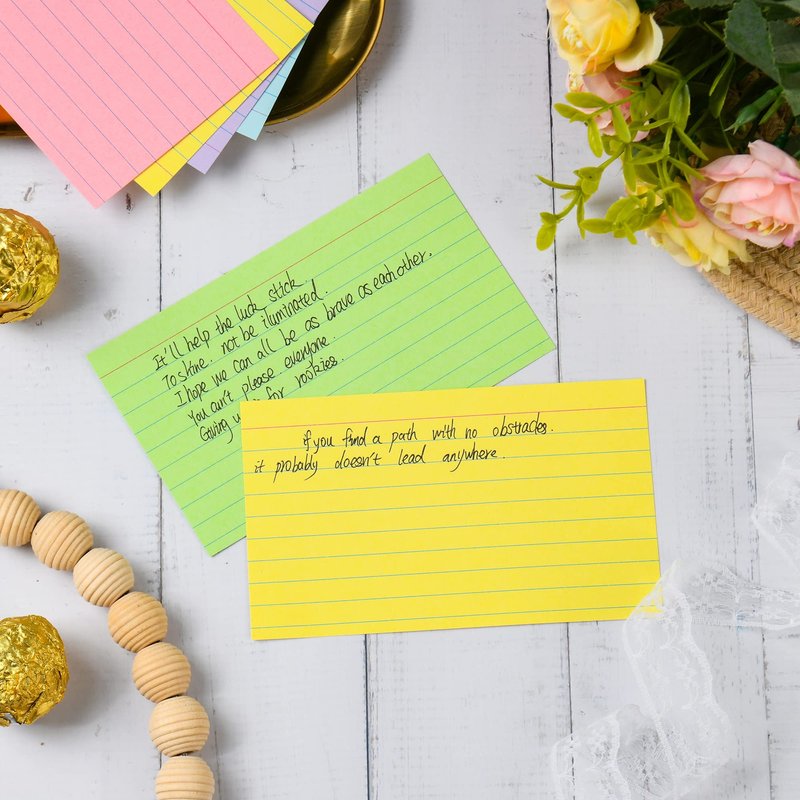 It'll help the luck stick.
To shine. not be iluminated.
I hope we can all be as brave as each other.
You ain't please everyone.
Giving u for rookies.
if you find a path with no obstracles.
it probably doesn't lead anywhere.